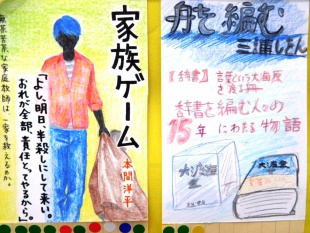 家族ゲーム
本間洋平
「よし、明日、半殺しにして来い。
おれが全部、責任とってやるから。」
無茶苦茶な家庭教師は
一家を救えるのか。
舟を編む
三浦しをん
【辞書】言葉という大海原
を渡る舟
辞書を編む人々の
15年にわたる物語
大渡海
大渡海